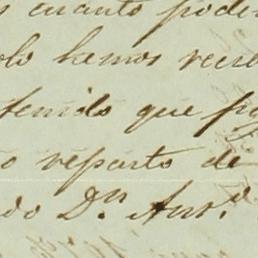 s cuanto pode
olo hemos reci
tenido que pa
o reparto de
do Dn. Ant.